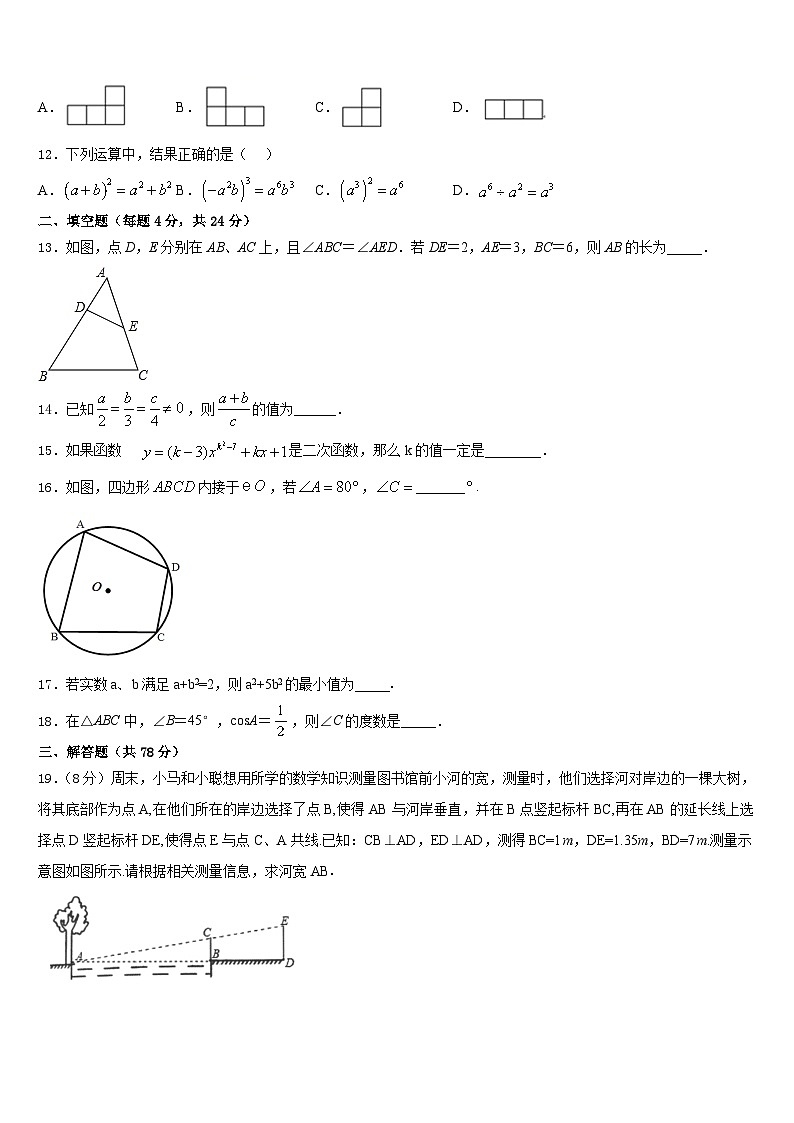 A. B. C. D.
12.下列运算中,结果正确的是( )
A.(a+b)²=a²+b² B.(-a²b)³=a⁶b³ C.(a³)²=a⁶ D.a⁶÷a²=a³
二、填空题(每题4分,共24分)
13.如图,点D,E分别在AB、AC上,且∠ABC=∠AED.若DE=2,AE=3,BC=6,则AB的长为_____.
A
D
E
B
C
14.已知a/2=b/3=c/4≠0,则(a+b)/c的值为______.
15.如果函数 y=(k-3)x^(k²-7)+kx+1是二次函数,那么k的值一定是________.
16.如图,四边形ABCD内接于eO,若∠A=80°,∠C=_______°.
A
D
O
B
C
17.若实数a、b满足a+b²=2,则a²+5b²的最小值为_____.
18.在△ABC中,∠B=45°,cosA=1/2,则∠C的度数是_____.
三、解答题(共78分)
19.(8分)周末,小马和小聪想用所学的数学知识测量图书馆前小河的宽,测量时,他们选择河对岸边的一棵大树,
将其底部作为点A,在他们所在的岸边选择了点B,使得AB与河岸垂直,并在B点竖起标杆BC,再在AB的延长线上选
择点D竖起标杆DE,使得点E与点C、A共线.已知:CB⊥AD,ED⊥AD,测得BC=1m,DE=1.35m,BD=7m.测量示
意图如图所示.请根据相关测量信息,求河宽AB.
E
C
A
B
D